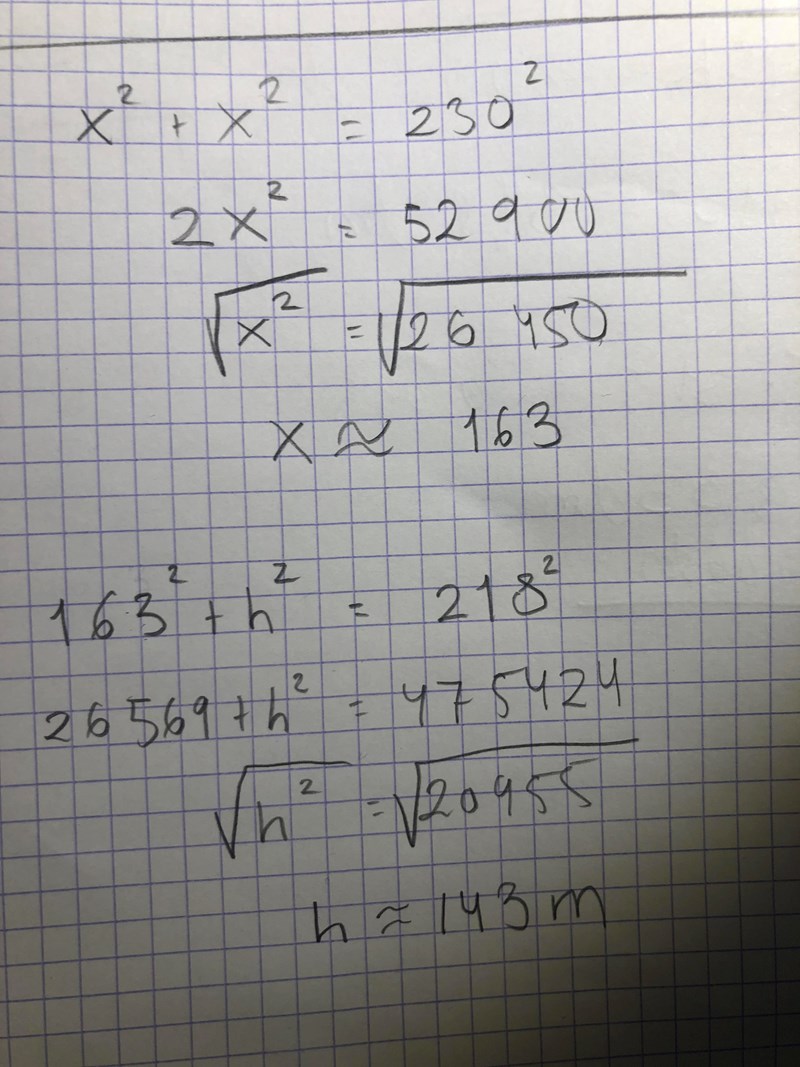 x² + x² = 230²
2x² = 52 900
√x² = √26 450
x ≈ 163
163² + h² = 218²
26 569 + h² = 475424
√h² = √20955
h ≈ 143 m